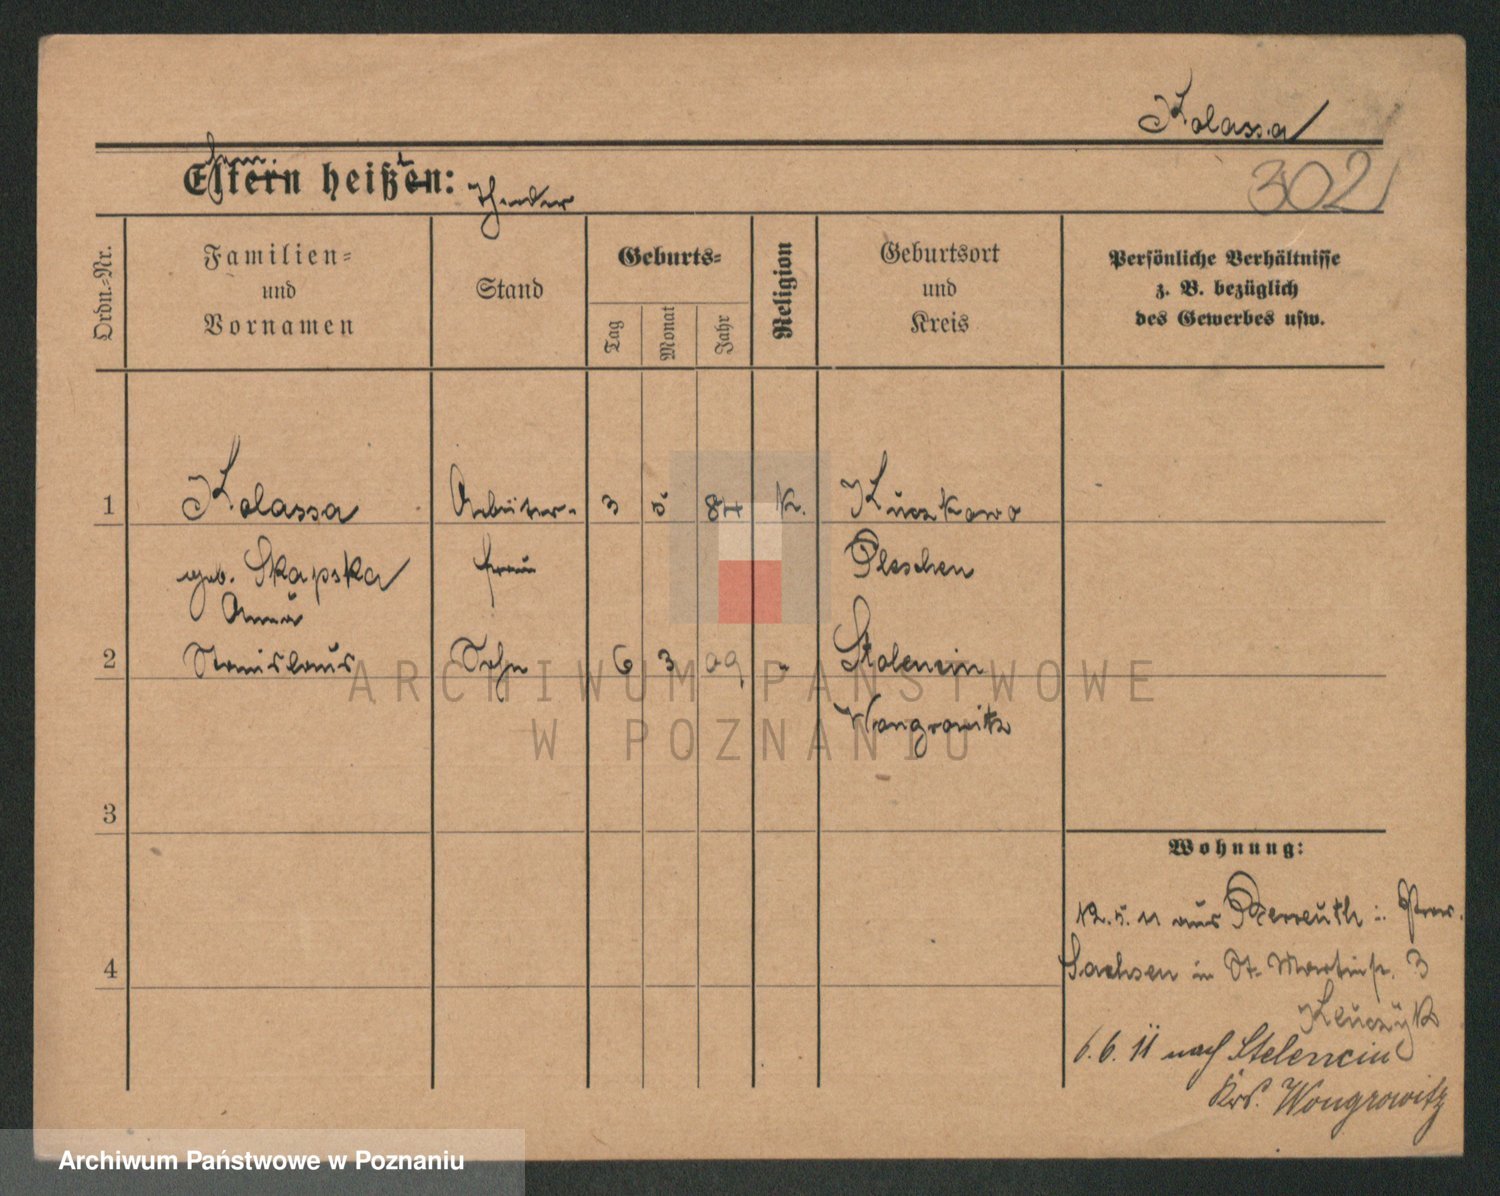 Kolassa
302
Eltern heißen:
Ordn.-Nr.
Familien-
und
Vornamen
Stand
Geburts-
Tag
Monat
Jahr
Religion
Geburtsort
und
Kreis
Persönliche Verhältnisse
z. B. bezüglich
des Gewerbes usw.
1 Kolassa Arbeiter- 3 5 84 K. Kuczkowo
geb. Skapska frau Pleschen
Anna
2 Stanislaus Sohn 6 3 09 " Stolencin
Wongrowitz
3
4
Wohnung:
12.5.11 aus i. Prov.
Sachsen in St. Martinstr. 3
6.6.11 nach Stelencin
Krs. Wongrowitz
ARCHIWUM PAŃSTWOWE
W POZNANIU
Archiwum Państwowe w Poznaniu